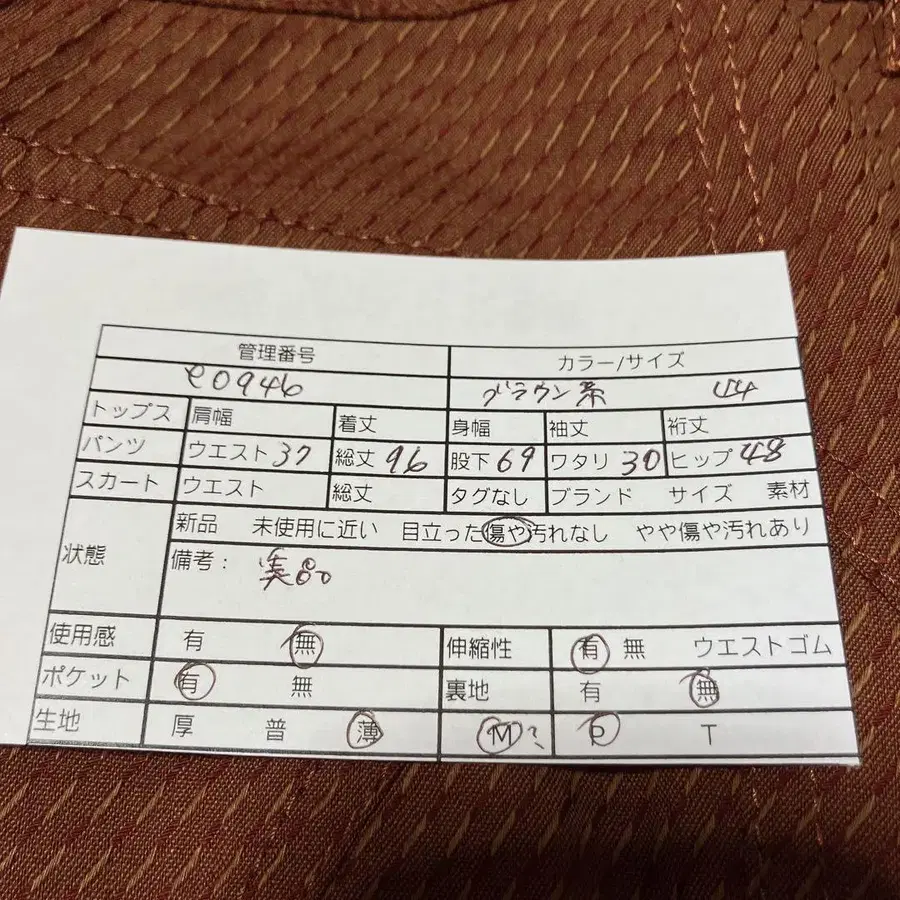 管理番号 カラー/サイズ
e0946 ブラウン系 44
トップス 肩幅 着丈 身幅 袖丈 裄丈
パンツ ウエスト37 総丈96 股下69 ワタリ30 ヒップ48
スカート ウエスト 総丈 タグなし ブランド サイズ 素材
状態 新品 未使用に近い 目立った傷や汚れなし やや傷や汚れあり
備考： 美品。
使用感 有 無 伸縮性 有 無 ウエストゴム
ポケット 有 無 裏地 有 無
生地 厚 普 薄 M? P T